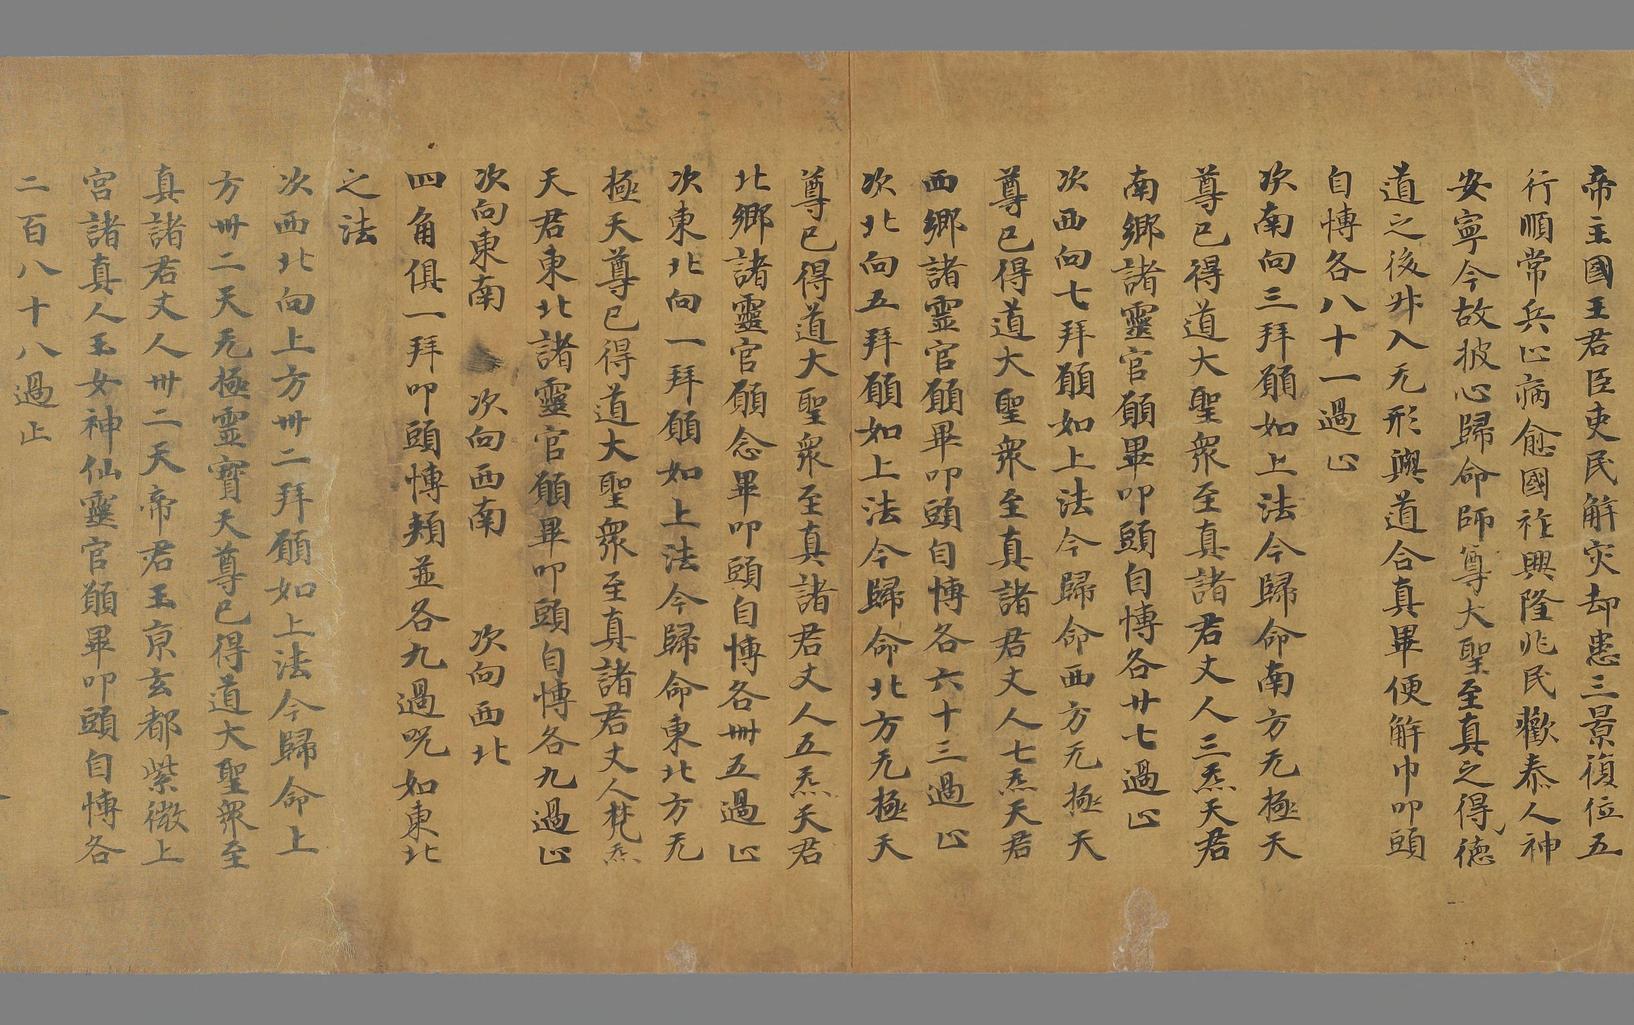 帝主國王君臣吏民解灾却患三景復位五
行順常兵止病愈國祚興隆兆民歡泰人神
安寧今故披心歸命師尊大聖至真之得德
道之後升入无形與道合真畢便解巾叩頭
自愽各八十一過止
次南向三拜願如上法今歸命南方无極天
尊已得道大聖衆至真諸君丈人三炁天君
南鄉諸靈官願畢叩頭自愽各廿七過止
次西向七拜願如上法今歸命西方无極天
尊已得道大聖衆至真諸君丈人七炁天君
西鄉諸靈官願畢叩頭自愽各六十三過止
次北向五拜願如上法今歸命北方无極天
尊已得道大聖衆至真諸君丈人五炁天君
北鄉諸靈官願念畢叩頭自愽各卌五過止
次東北向一拜願如上法今歸命東北方无
極天尊已得道大聖衆至真諸君丈人梵炁
天君東北諸靈官願畢叩頭自愽各九過止
次向東南　次向西南　次向西北
四角俱一拜叩頭愽頬並各九過呪如東北
之法
次西北向上方卅二拜願如上法今歸命上
方卅二天无極靈寳天尊已得道大聖衆至
真諸君丈人卅二天帝君玉京玄都紫微上
宮諸真人玉女神仙靈官願畢叩頭自愽各
二百八十八過止